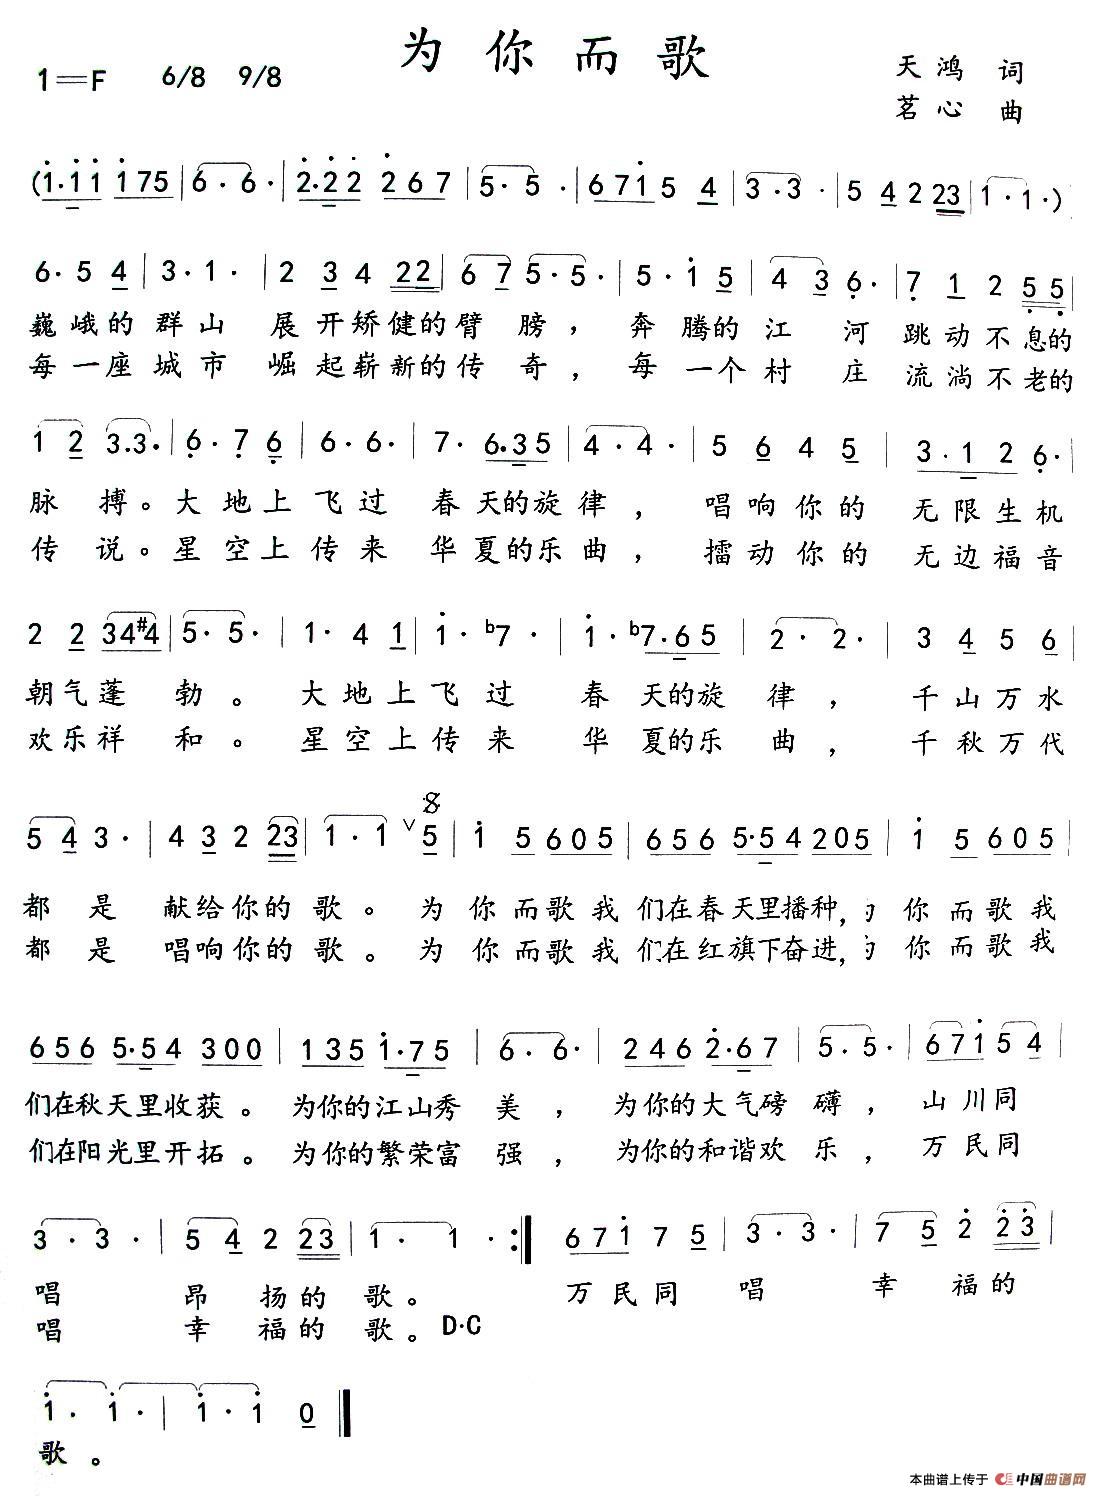 为你而歌
1=F 6/8 9/8
天鸿 词
茗心 曲
(1·11 175 | 6· 6· | 2·22 267 | 5· 5· | 6715 4 | 3· 3· | 5 4 2 23 | 1· 1· )
6· 5 4 | 3· 1· | 2 3 4 22 | 6 7 5· 5· | 5· 1 5 | 4 3 6· | 7 1 2 55 |
巍峨的群山 展开矫健的臂膀，奔腾的江河跳动不息的
每一座城市 崛起崭新的传奇，每一个村庄流淌不老的
1 2 3·3· | 6· 7 6 | 6· 6· | 7· 6·35 | 4· 4· | 5 6 4 5 | 3·1 2 6· |
脉搏。大地上飞过 春天的旋律，唱响你的无限生机
传说。星空上传来 华夏的乐曲，擂动你的无边福音
2 2 34#4 | 5· 5· | 1· 4 1 | 1· b7· | 1· b7·65 | 2· 2· | 3 4 5 6 |
朝气蓬勃。大地上飞过 春天的旋律，千山万水
欢乐祥和。星空上传来 华夏的乐曲，千秋万代
5 4 3· | 4 3 2 23 | 1· 1 ∨ 5 | 1 5 605 | 656 5·54 205 | 1 5 605 |
都是献给你的歌。为你而歌我们在春天里播种，为你而歌我
都是唱响你的歌。为你而歌我们在红旗下奋进，为你而歌我
656 5·54 300 | 135 1·75 | 6· 6· | 246 2·67 | 5· 5· | 671 5 4 |
们在秋天里收获。为你的江山秀美，为你的大气磅礴，山川同
们在阳光里开拓。为你的繁荣富强，为你的和谐欢乐，万民同
3· 3· | 5 4 2 23 | 1· 1· :‖ 671 7 5 | 3· 3· | 7 5 2 23 |
唱 昂扬的歌。 万民同唱 幸福的
唱 幸福的歌。D·C
1· 1· | 1· 1 0 ‖
歌。
本曲谱上传于 中国曲谱网